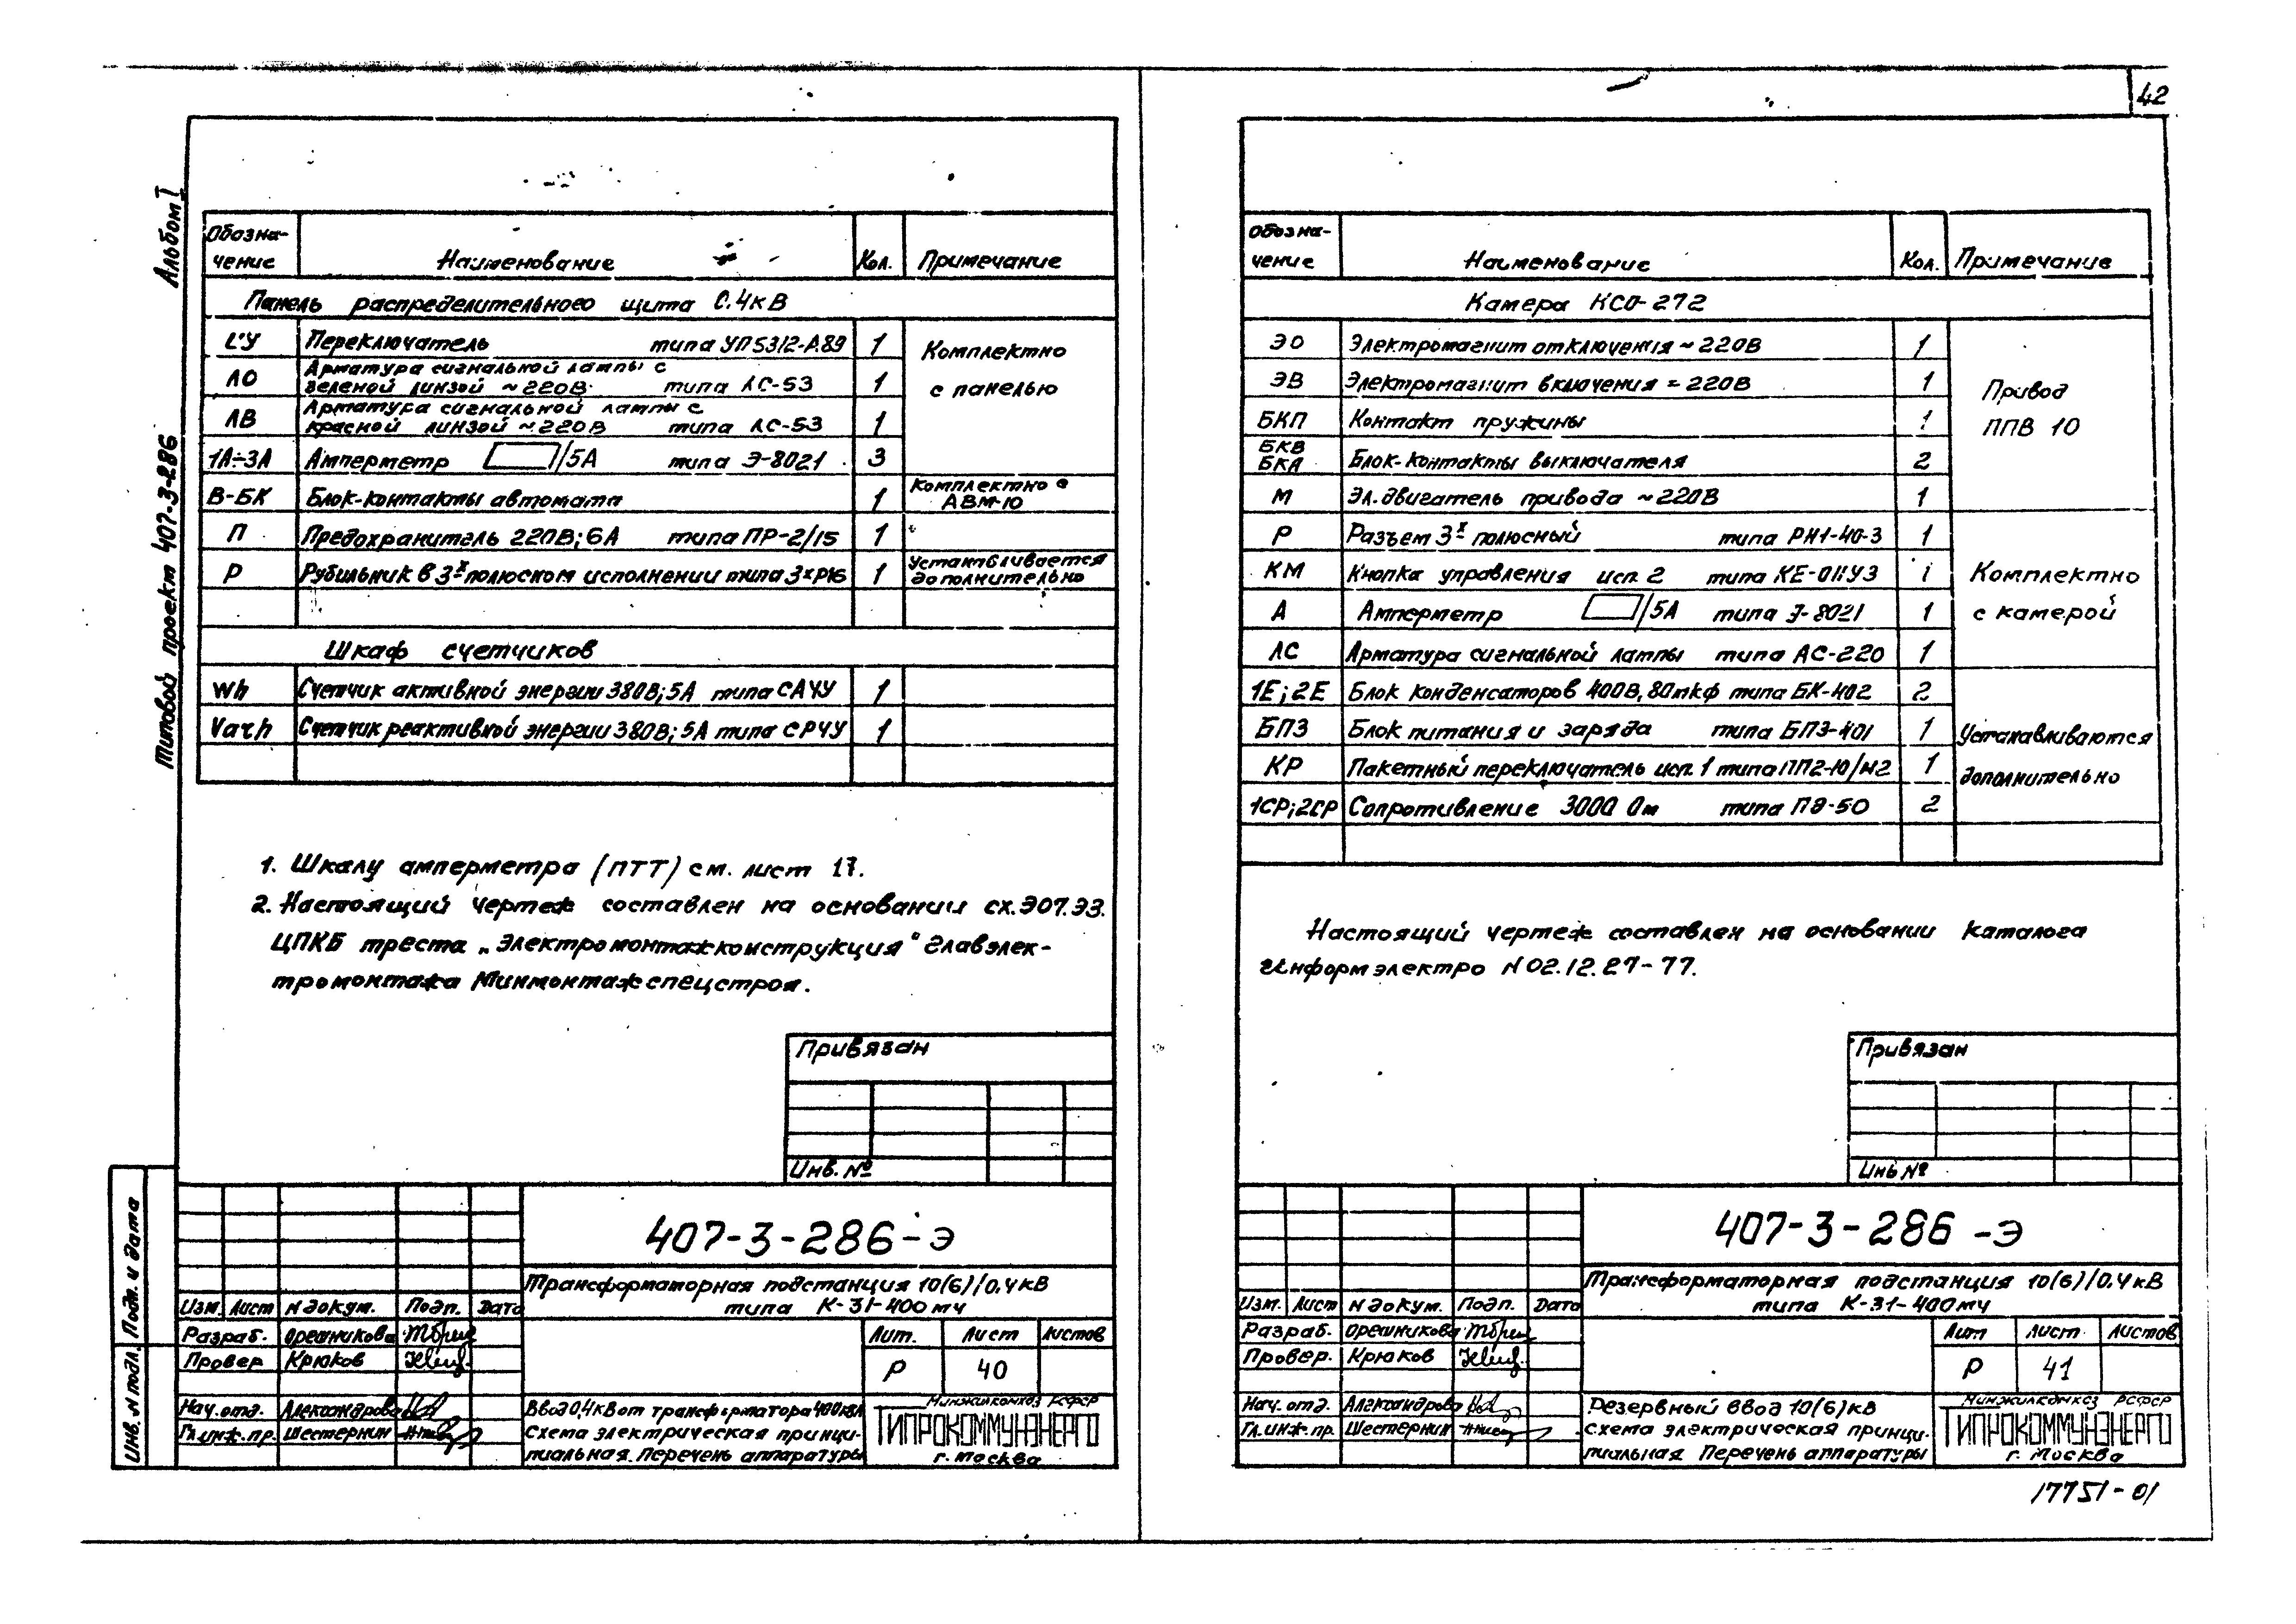 42
Альбом I
Типовой проект 407-3-286
Обозна-
чение
Наименование
Кол.
Примечание
Панель распределительного щита 0.4кВ
Переключатель типа УП5312-А89 1
Комплектно
с панелью
ЛО Арматура сигнальной лампы с
зеленой линзой ~220В типа ЛС-53 1
ЛВ Арматура сигнальной лампы с
красной линзой ~220В типа ЛС-53 1
1А÷3А Амперметр /5А типа Э-8021 3
В-БК Блок-контакты автомата 1 Комплектно с
АВМ-10
П Предохранитель 220В; 6А типа ПР-2/15 1
Р Рубильник в 3х полюсном исполнении типа 3хР16 1 Устанавливается
дополнительно
Шкаф счетчиков
Wh Счетчик активной энергии 380В; 5А типа СА4У 1
Varh Счетчик реактивной энергии 380В; 5А типа СР4У 1
1. Шкалу амперметра (ПТТ) см. лист 17.
2. Настоящий чертеж составлен на основании сх.Э07.ЭЗ.
ЦПКБ треста „Электромонтажконструкция" Главэлек-
тромонтажа Минмонтажспецстроя.
Привязан
Инв. №
407-3-286-Э
Трансформаторная подстанция 10(6)/0,4кВ
типа К-31-400мч
Изм. Лист N докум. Подп. Дата
Разраб. Орешникова
Провер Крюков
Нач.отд. Александрова
Гл.инж.пр. Шестернин
Лит. Лист Листов
Р 40
Ввод 0,4кВ от трансформатора 400кВА
Схема электрическая принци-
пиальная. Перечень аппаратуры
Минжилкомхоз РСФСР
ГИПРОКОММУНЭНЕРГО
г. Москва
Подп. и дата
Инв. N подл.
Обозна-
чение
Наименование
Кол.
Примечание
Камера КСО-272
ЭО Электромагнит отключения ~220В 1
ЭВ Электромагнит включения = 220В 1
БКП Контакт пружины 1
БКВ
БКА Блок-контакты выключателя 2
М Эл.двигатель привода ~220В 1
Привод
ППВ 10
Р Разъем 3х полюсный типа РН1-40-3 1
КМ Кнопка управления исп. 2 типа КЕ-011У3 1
А Амперметр /5А типа Э-8021 1
ЛС Арматура сигнальной лампы типа АС-220 1
Комплектно
с камерой
1Е; 2Е Блок конденсаторов 400В, 80мкф типа БК-402 2
БПЗ Блок питания и заряда типа БПЗ-401 1
КР Пакетный переключатель исп. 1 типа ПП2-10/Н2 1
1СР; 2СР Сопротивление 3000 Ом типа ПЭ-50 2
Устанавливаются
дополнительно
Настоящий чертеж составлен на основании каталога
Информэлектро N 02.12.27-77.
Привязан
Инв №
407-3-286-Э
Трансформаторная подстанция 10(6)/0.4кВ
типа К-31-400мч
Изм. Лист N докум. Подп. Дата
Разраб. Орешникова
Провер. Крюков
Нач.отд. Александрова
Гл.инж.пр. Шестернин
Лит Лист Листов
Р 41
Резервный ввод 10(6)кВ
Схема электрическая принци-
пиальная Перечень аппаратуры
Минжилкомхоз РСФСР
ГИПРОКОММУНЭНЕРГО
г. Москва
17751-01